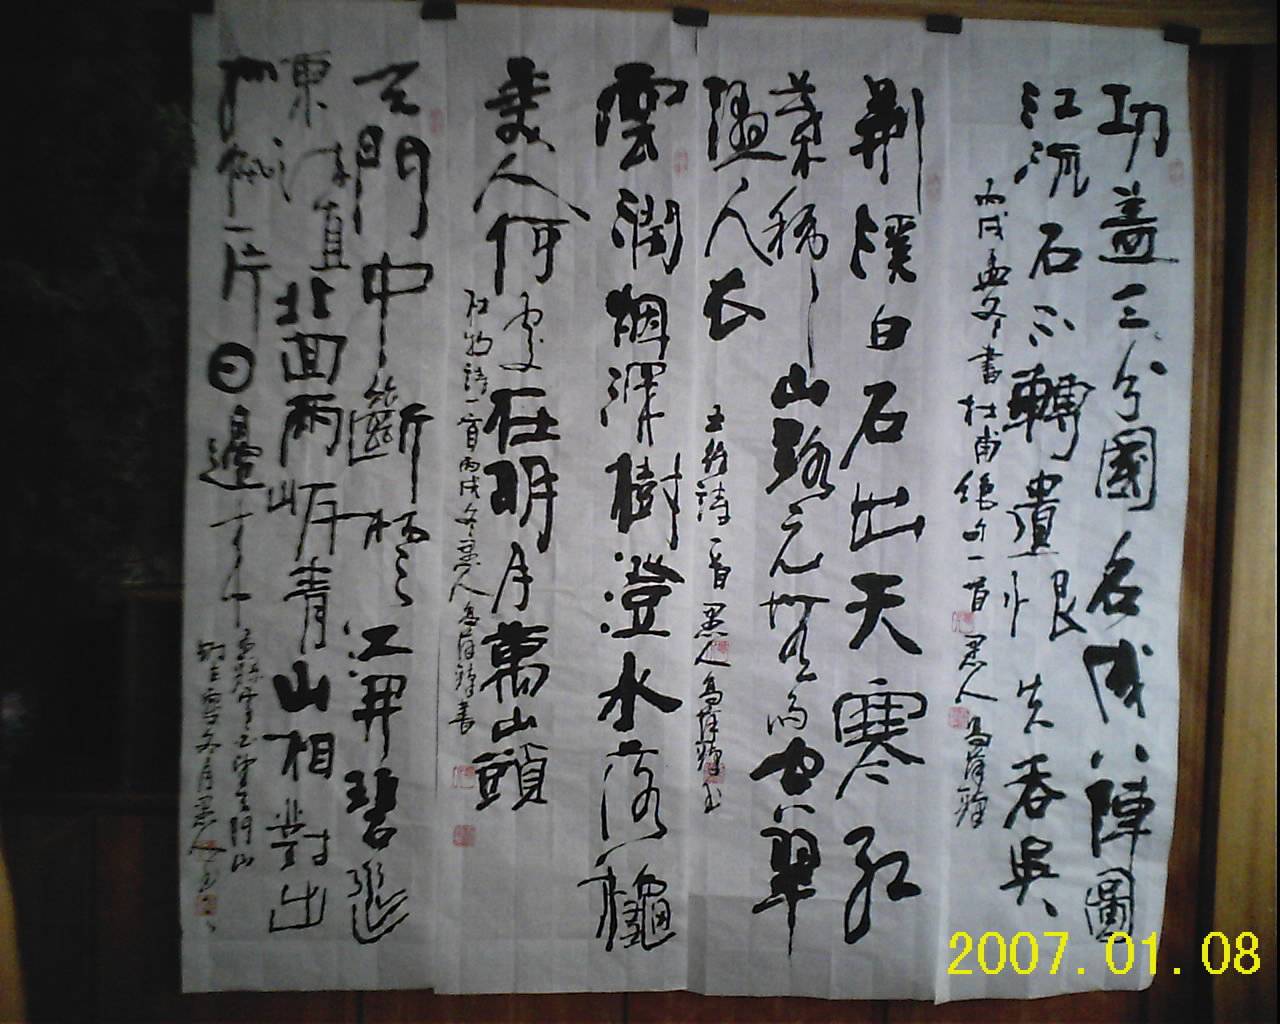 功盖三分國名成八陣圖
江流石不轉遺恨失吞吳
丙戌孟冬書杜甫絕句一首 愚人
荆溪白石出天寒紅
葉稀山路元無雨空翠
濕人衣
王維詩一首 愚人
雲濶烟深樹澄水落龝
美人何處在明月萬山頭
杜牧詩一首丙戌冬愚人 書
天門中斷楚江開碧
東流直北回兩岸青山相對出
孤帆一片日邊來
望天門山
冬月愚人
2007.01.08